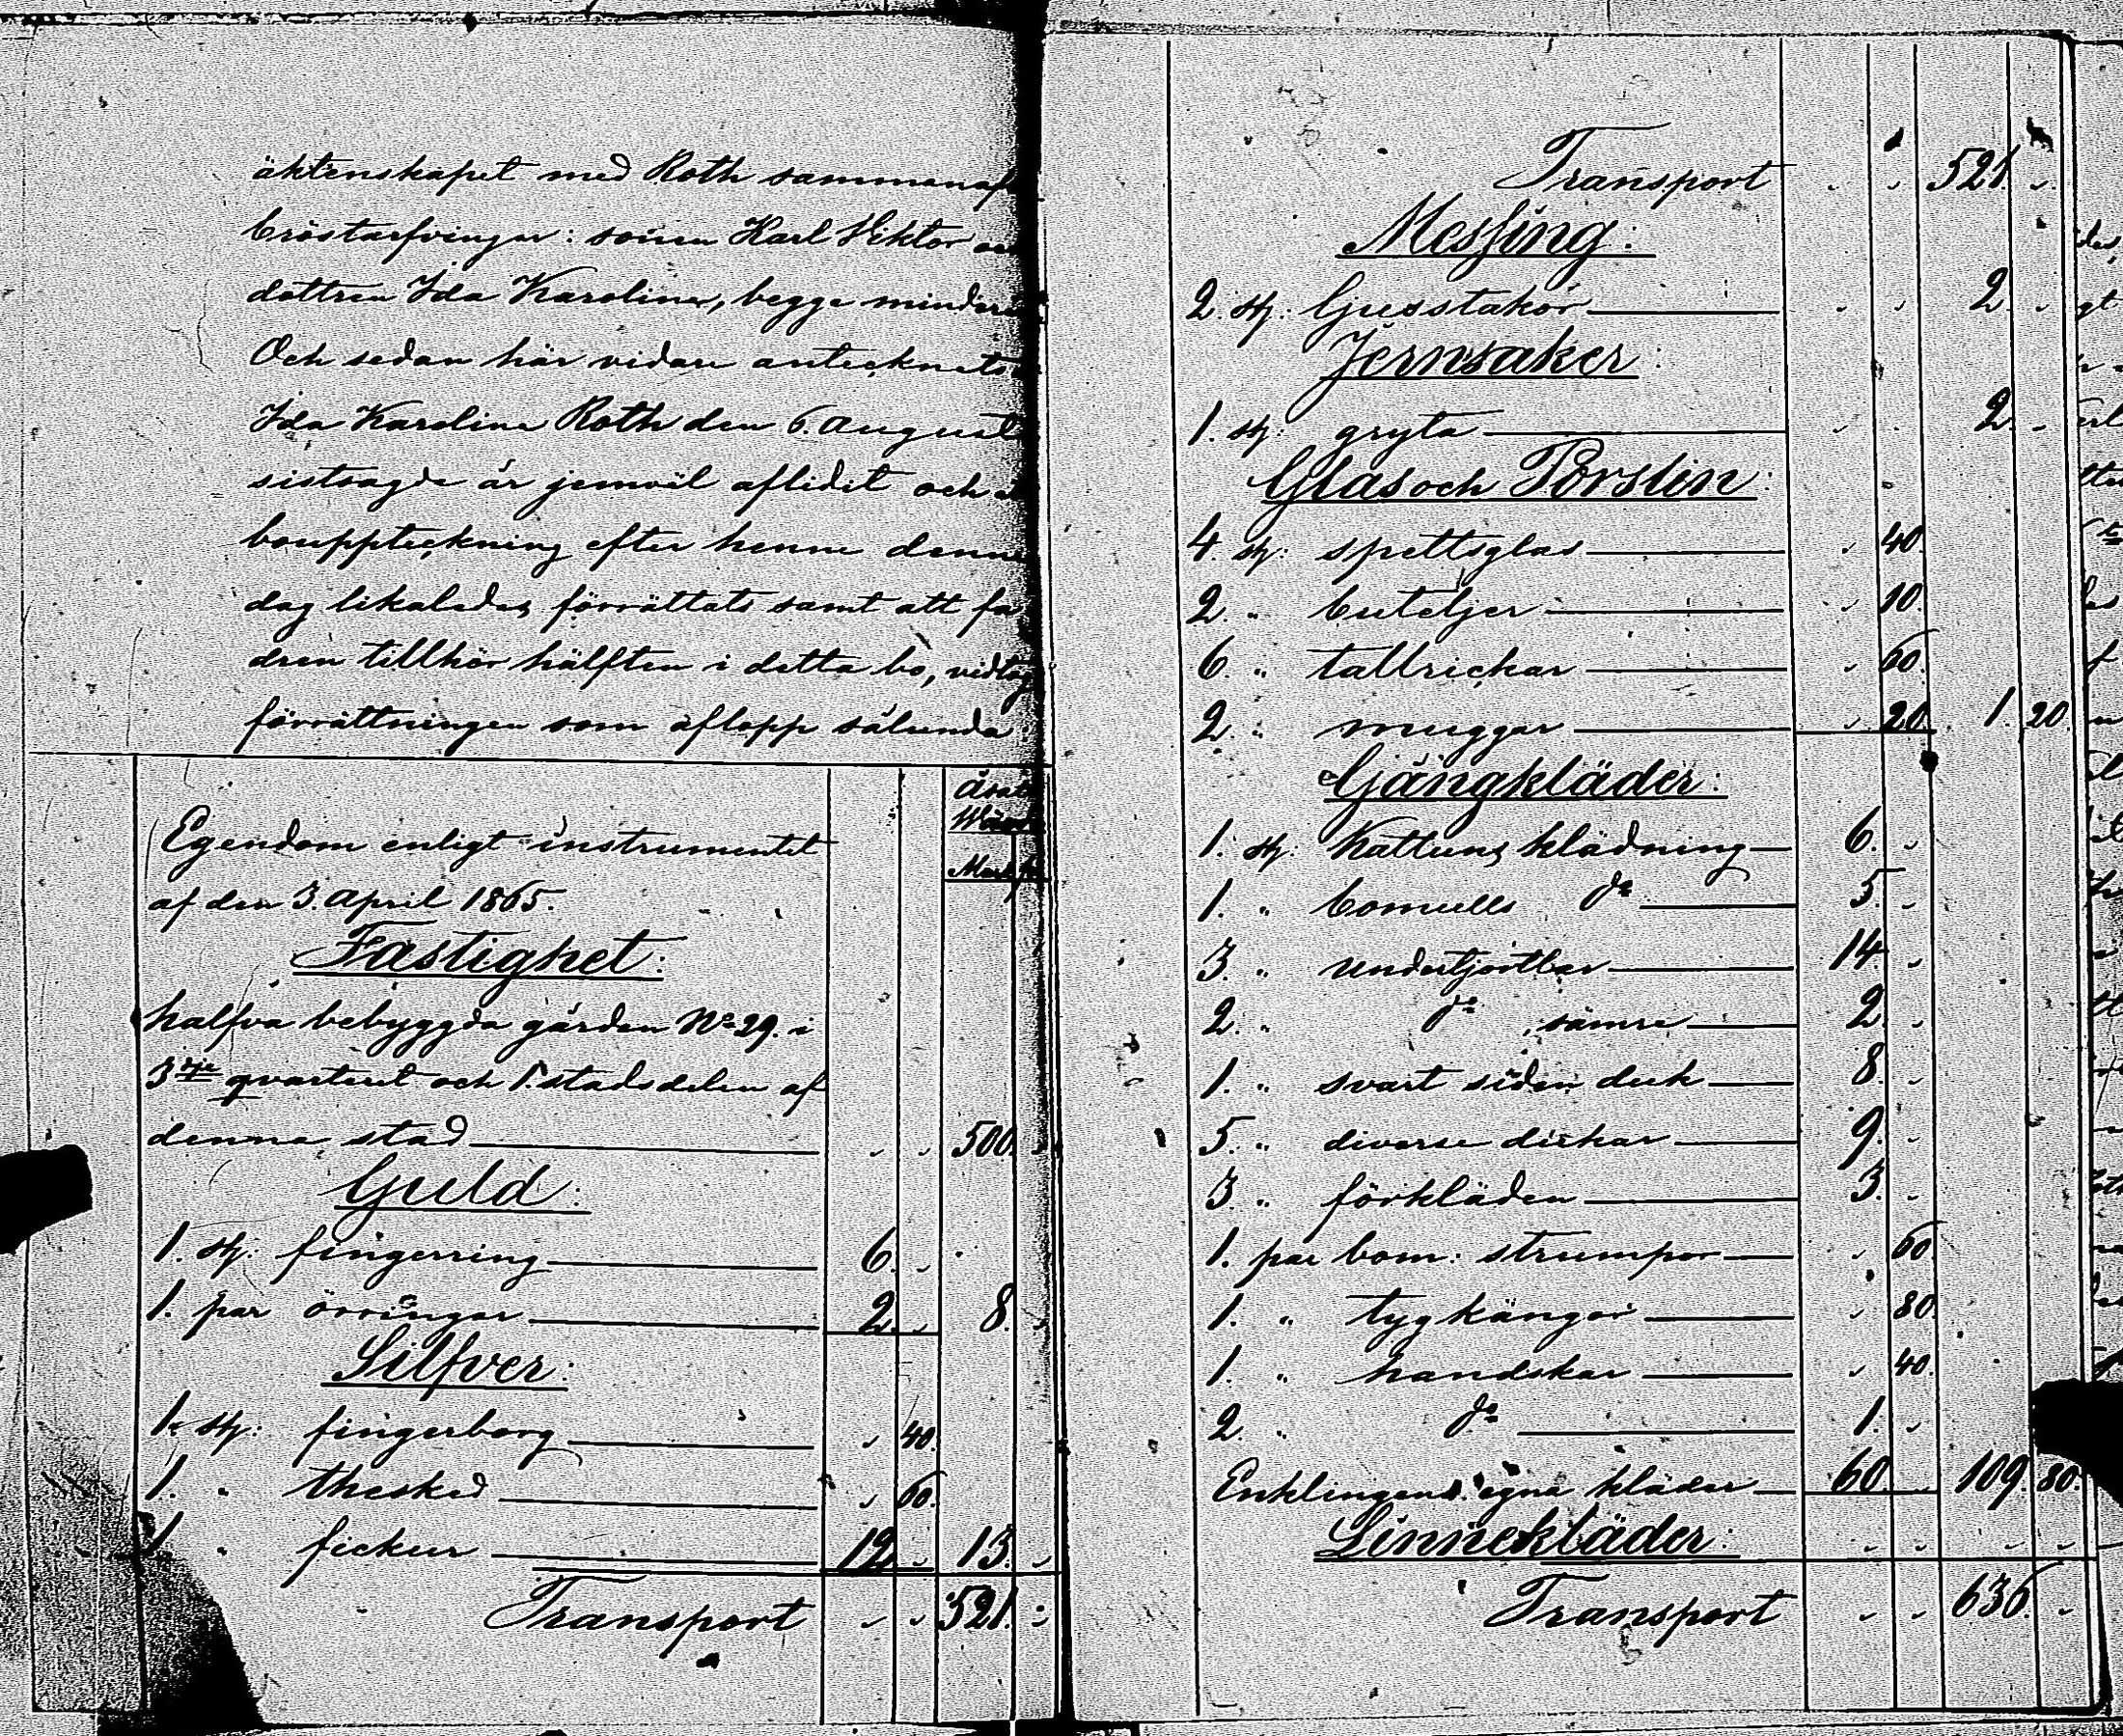 äktenskapet med Roth sammanaf
bröstarfvingar: sonen Karl Viktor oc
dottren Ida Karolina, begge minder
Och sedan här vidare antecknats
Ida Karolina Roth den 6. Augusti
sistsagde år jemväl aflidit och
bouppteckning efter henne denna
dag likaledes förrättats samt att fa
dren tillhör hälften i detta bo, vidtog
förrättningen som aflopp sålunda
Mark
Egendom enligt instrumentet
af den 3. April 1865.
Fastighet:
halfva bebyggda gården No 29. i
3dje qvarteret och 1 stadsdelen af
denna stad 500.
Guld:
1. st: fingerring 6.
1. par örringar 2. 8.
Silfver:
1. st: fingerborg 40.
1. " thesked 60.
1 " fickur 12 13.
Transport 521.
Transport 521.
Messing:
2. st: ljusstakor 2.
Jernsaker:
1. st: gryta 2.
Glas och Porslin:
4. st: spettsglas 40.
2. " buteljer 10.
6. " tallrickar 60.
2. " muggar 20. 1. 20.
Gångkläder:
1. st: Kattuns klädning 6.
1. " bomulls do 5.
3. " underkjortlar 14.
2. " do sämre 2.
1. " svart siden duk 8.
5. " diverse dukar 9.
3. " förkläden 3.
1. par bom: strumpor 60.
1. " tygkängor 80.
1. " handskar 40.
2. " do 1.
Enklingens egna kläder 60. 109. 80.
Linnekläder:
Transport 636.